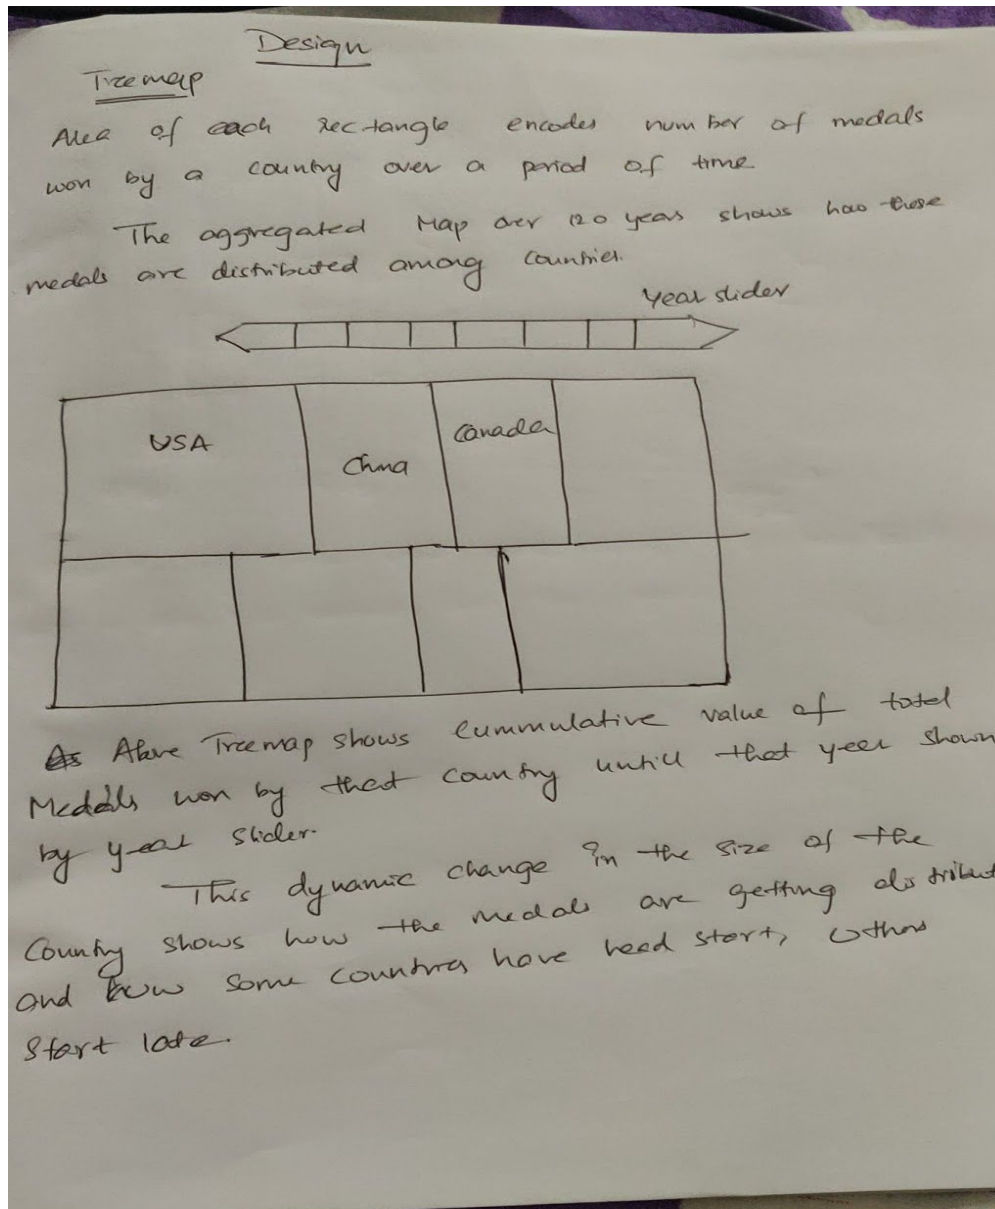 Design
Treemap
Area of each rectangle encodes number of medals
won by a country over a period of time
The aggregated Map over 120 years shows how these
medals are distributed among countries.
Year slider
USA
China
Canada
Above Treemap shows Cummulative value of total
Medals won by that country untill that year shown
by year slider.
This dynamic change in the size of the
Country shows how the medals are getting distribut
and how some countries have head start, others
start late.